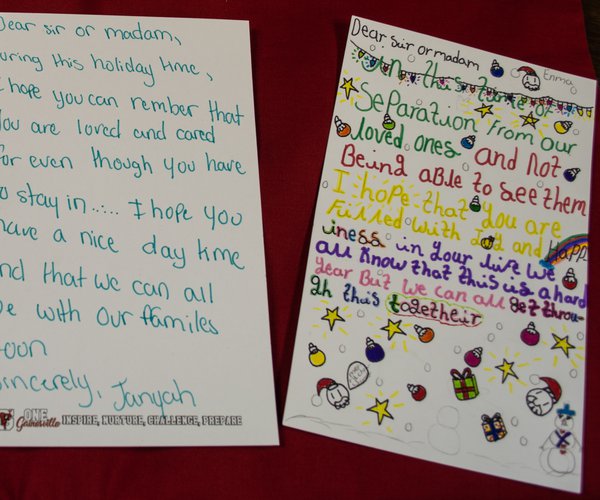 Dear sir or madam,
During this holiday time,
I hope you can rember that
you are loved and cared
for even though you have
to stay in...... I hope you
have a nice day time
and that we can all
be with our familes
soon
Sincerely, Janyah
ONE
Gainesville INSPIRE, NURTURE, CHALLENGE, PREPARE
Dear sir or madam
Enma
in this time of
Separation from our
loved ones and not
Being able to see them
I hope that you are
Filled with Joy and Happ
iness in your live We
all Know that this is a hard
year But We can all get throu-
gh this togetheir